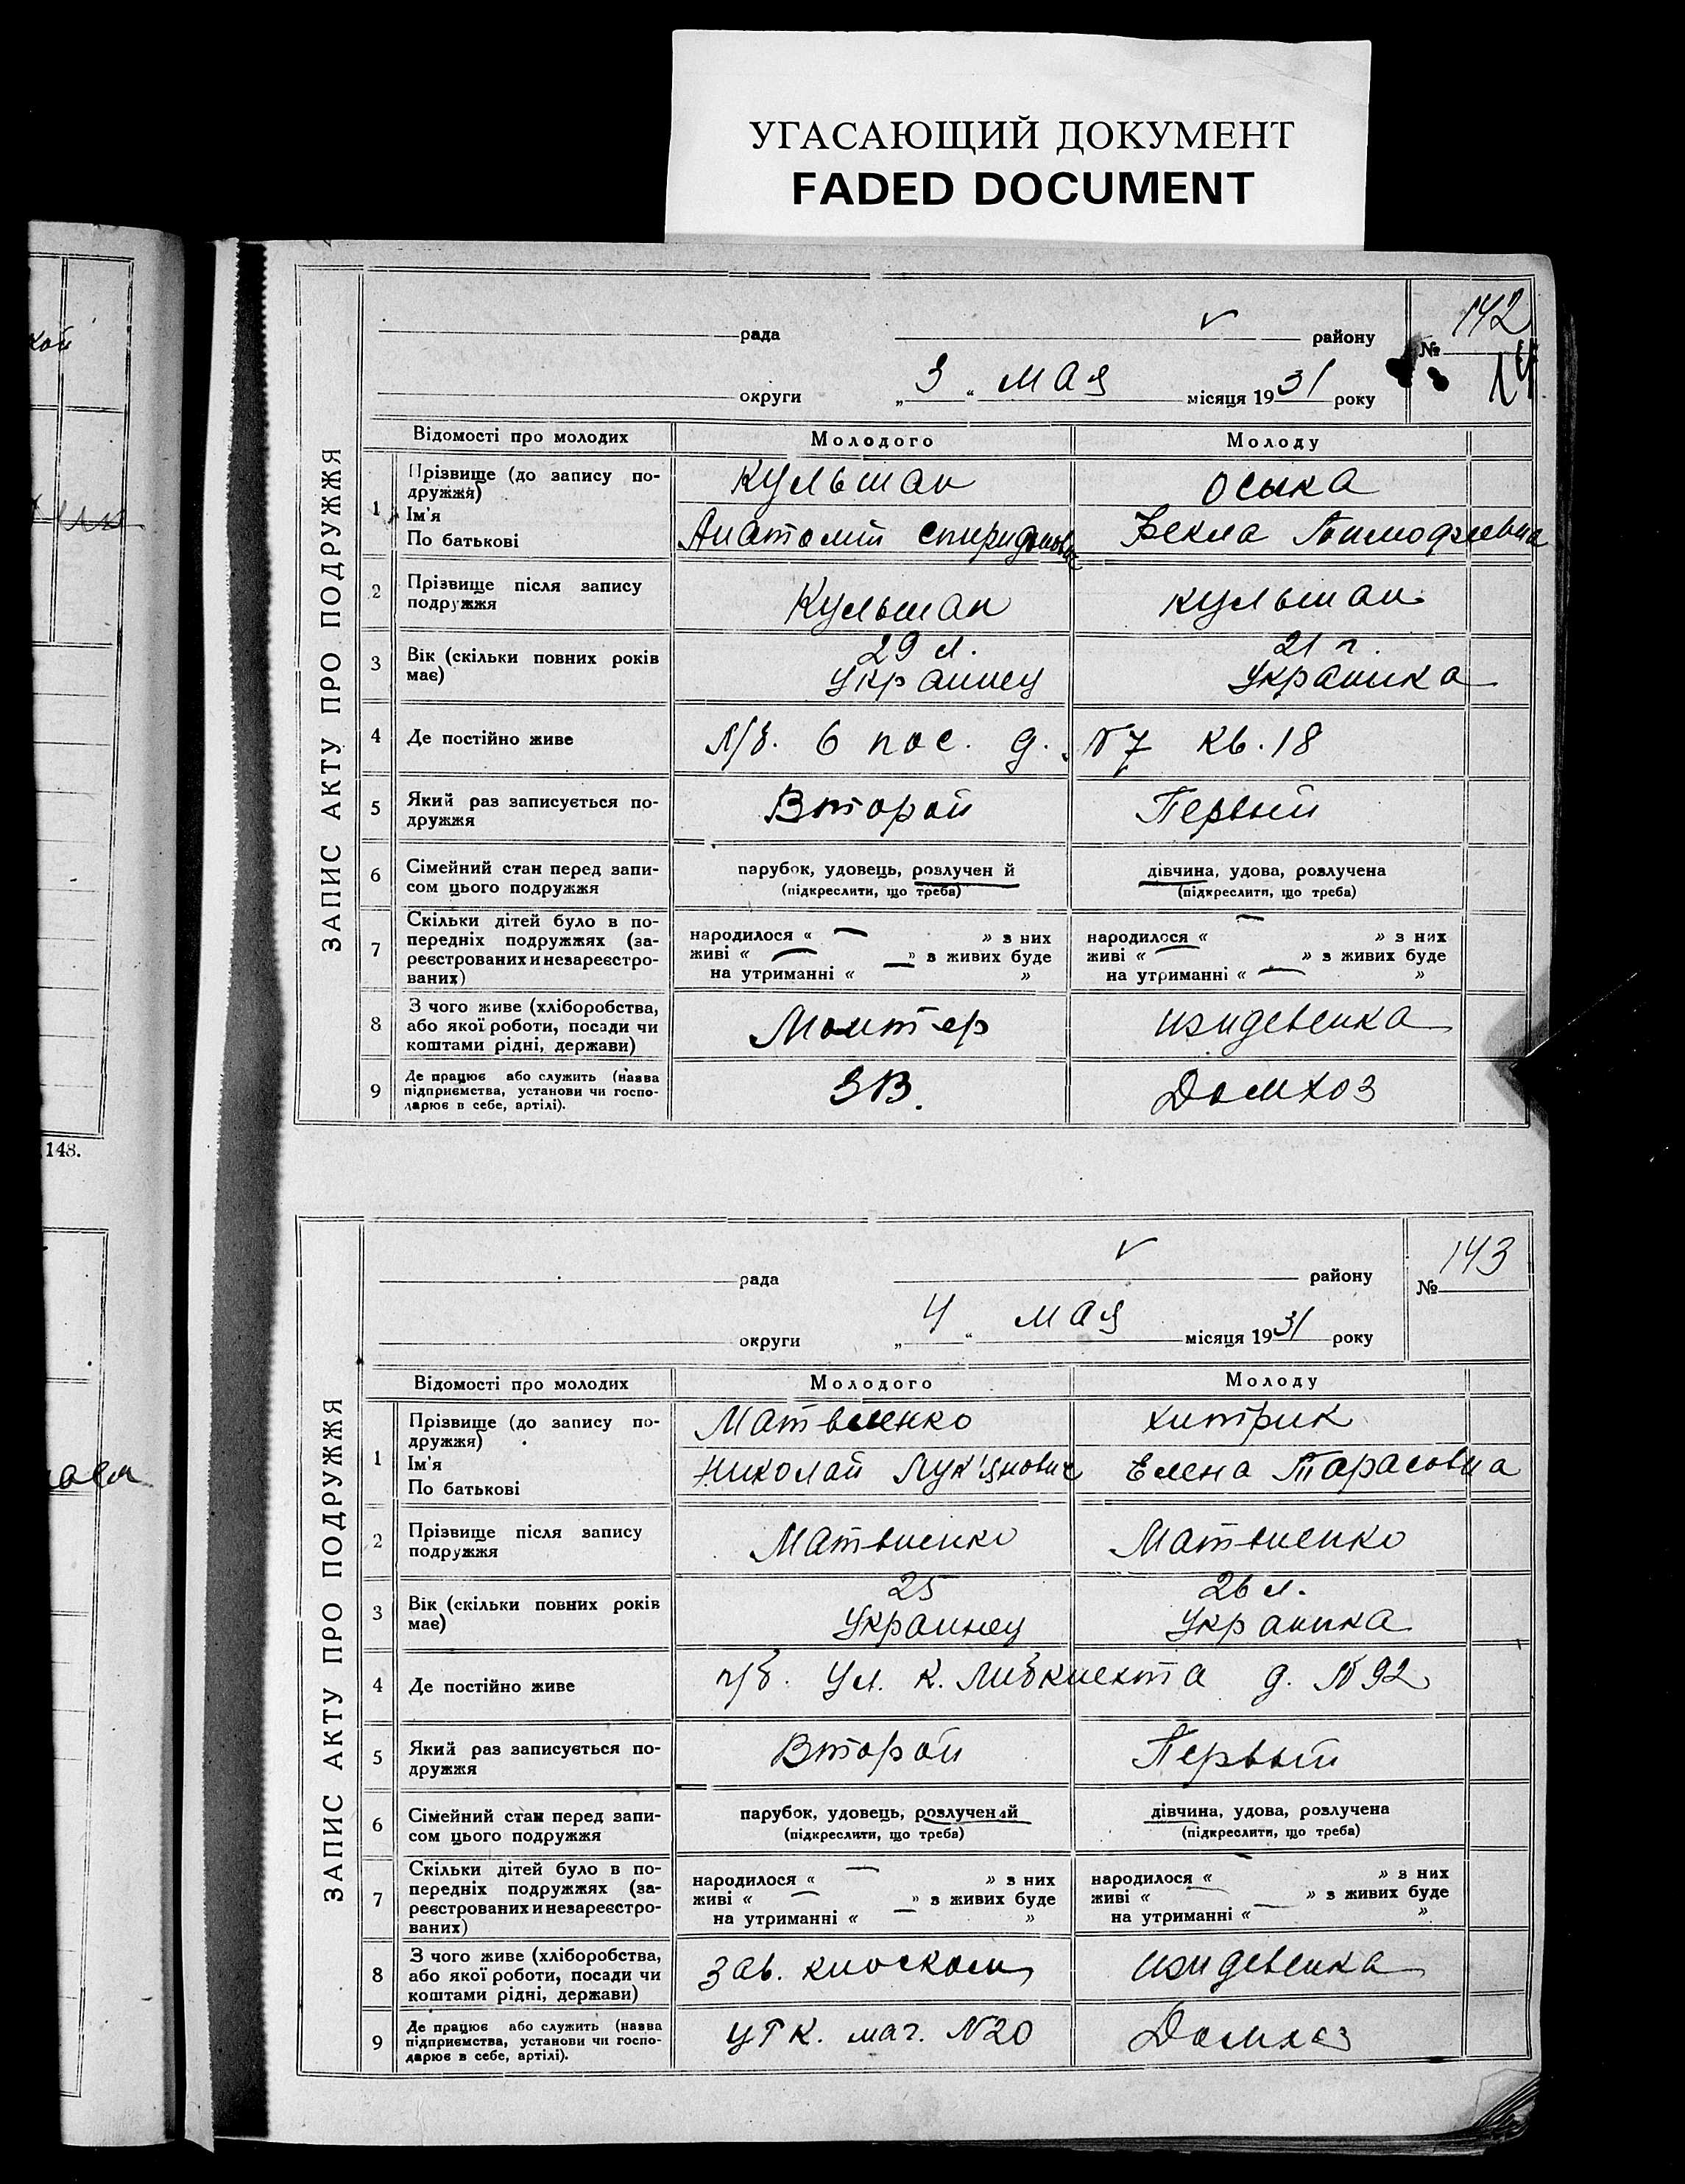 УГАСАЮЩИЙ ДОКУМЕНТ
FADED DOCUMENT
кой
148.
ЗАПИС АКТУ ПРО ПОДРУЖЖЯ
рада V району
№ 142
округи „3“ мая місяця 1931 року
Відомості про молодих Молодого Молоду
1 Прізвище (до запису по-
дружжя) Кульман Осыка
Ім'я
По батькові Анатолий Спиридонович Фекла Тимофеевна
2 Прізвище після запису
подружжя Кульман Кульман
3 Вік (скільки повних років
має) 29 л. 21 г.
Украинец Украинка
4 Де постійно живе Л/б. 6 пос. д. №7 кв. 18
5 Який раз записується по-
дружжя Второй Первый
6 Сімейний стан перед запи-
сом цього подружжя
парубок, удовець, розлучен й
(підкреслити, що треба)
дівчина, удова, розлучена
(підкреслити, що треба)
7 Скільки дітей було в по-
передніх подружжях (за-
реєстрованих и незареєстро-
ваних)
народилося « — » з них
живі « — » з живих буде
на утриманні « — »
народилося « — » з них
живі « — » з живих буде
на утриманні « — »
8 З чого живе (хліборобства,
або якої роботи, посади чи
коштами рідні, держави) Монтер иждевенка
9 Де працює або служить (назва
підприємства, установи чи госпо-
дарює в себе, артілі). ЗВ. Домхоз
ЗАПИС АКТУ ПРО ПОДРУЖЖЯ
рада V району
№ 143
округи „4“ мая місяця 1931 року
Відомості про молодих Молодого Молоду
1 Прізвище (до запису по-
дружжя) Матвиенко Хитрик
Ім'я
По батькові Николай Лук'янович Елена Тарасовна
2 Прізвище після запису
подружжя Матвиенко Матвиенко
3 Вік (скільки повних років
має) 25 26 л.
Украинец Украинка
4 Де постійно живе п/б. ул. К. Либкнехта д. № 92
5 Який раз записується по-
дружжя Второй Первый
6 Сімейний стан перед запи-
сом цього подружжя
парубок, удовець, розлучений
(підкреслити, що треба)
дівчина, удова, розлучена
(підкреслити, що треба)
7 Скільки дітей було в по-
передніх подружжях (за-
реєстрованих и незареєстро-
ваних)
народилося « — » з них
живі « — » з живих буде
на утриманні « — »
народилося « — » з них
живі « — » з живих буде
на утриманні « — »
8 З чого живе (хліборобства,
або якої роботи, посади чи
коштами рідні, держави) Зав. киоском иждевенка
9 Де працює або служить (назва
підприємства, установи чи госпо-
дарює в себе, артілі). ЦРК. маг. №20 Домхоз